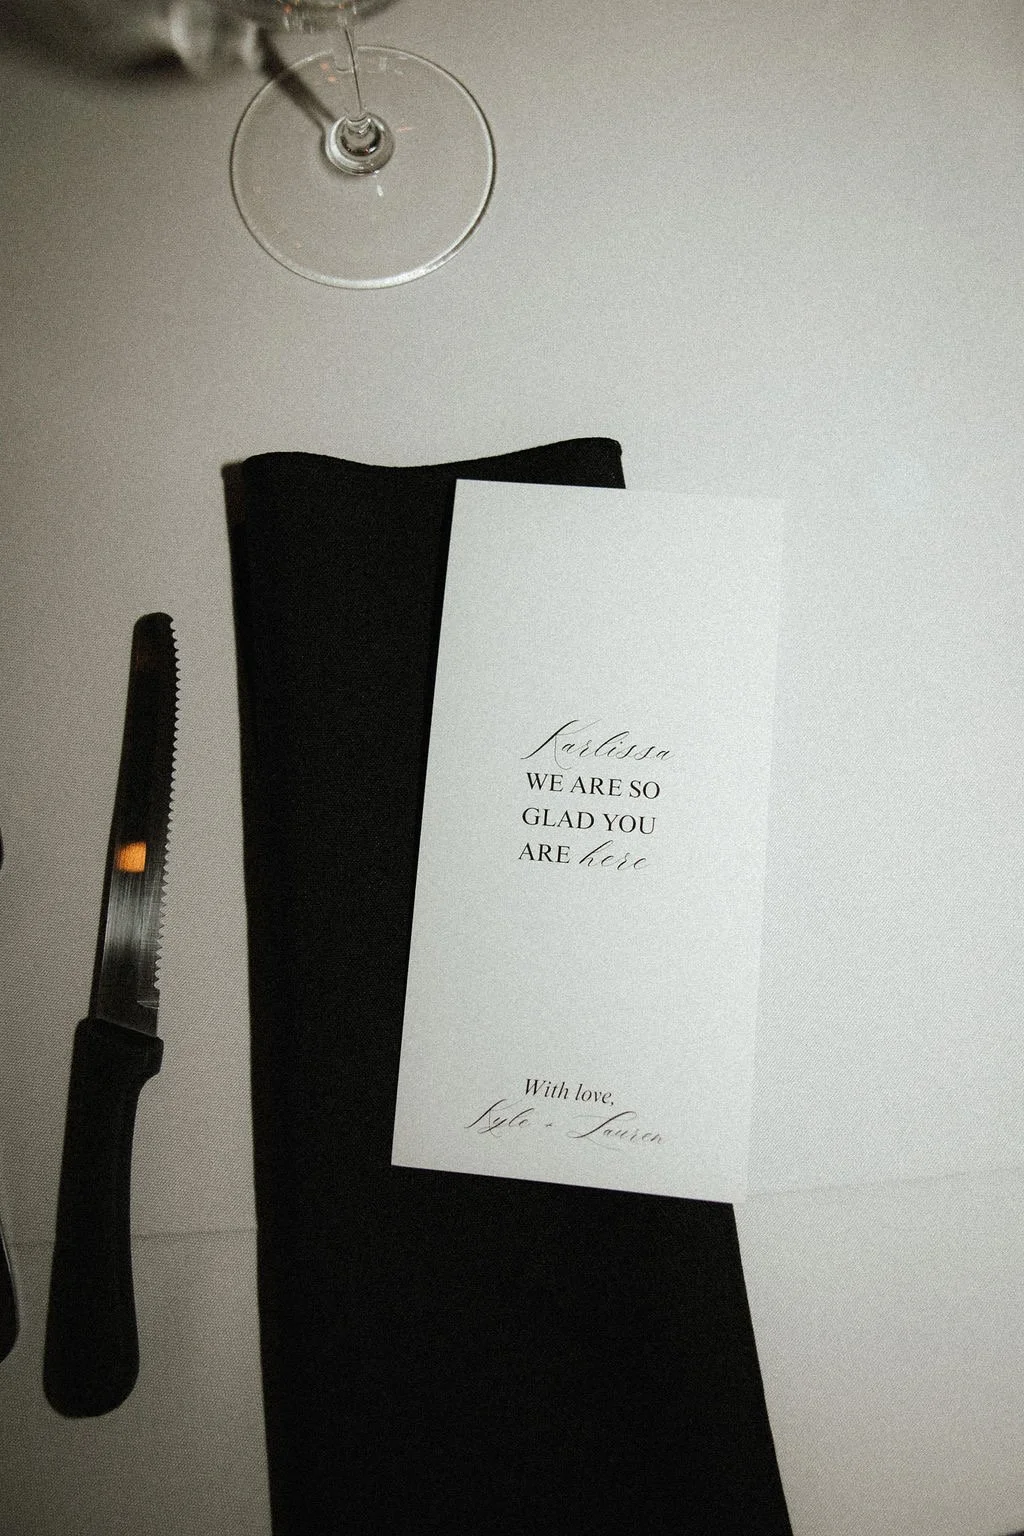 Karlissa
WE ARE SO
GLAD YOU
ARE here
With love,
Kyle + Lauren